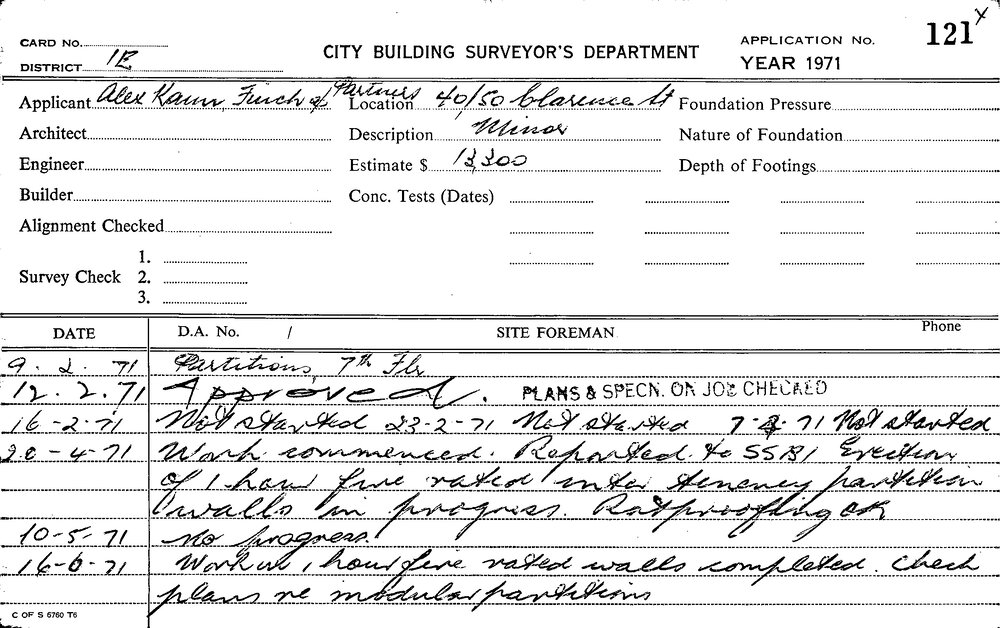 121 X
CARD No.
CITY BUILDING SURVEYOR'S DEPARTMENT
APPLICATION No.
DISTRICT 1E
YEAR 1971
Applicant Alex Kann Finch & Partners
Location 40/50 Clarence St
Foundation Pressure
Architect
Description Minor
Nature of Foundation
Engineer
Estimate $ 13,300
Depth of Footings
Builder
Conc. Tests (Dates)
Alignment Checked
1.
Survey Check 2.
3.
DATE D.A. No. / SITE FOREMAN Phone
9. 2. 71 Partitions, 7th Flr
12. 2. 71 Approved. PLANS & SPECN. ON JOB CHECKED
16-2-71 Not started 23-2-71 Not started 7-4-71 Not started
20-4-71 Work commenced. Reported to SSB1 Erection
of 1 hour fire rated inter tenency partition
walls in progress. Ratproofing OK
10-5-71 no progress.
16-6-71 Work on 1 hour fire rated walls completed. Check
plans re modular partitions
C OF S 6760 T6